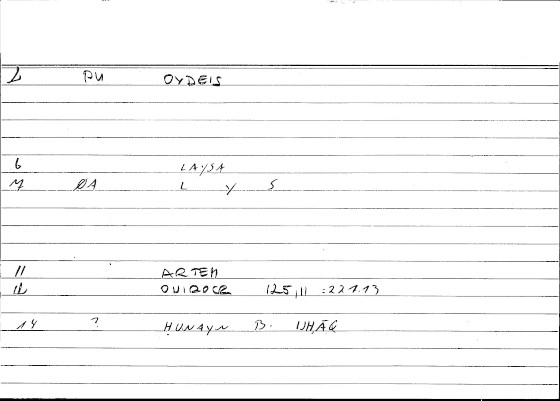 2 PU OYDEIS
6 LAYSA
M ØA L Y S
11 ARTEM
12 OUIDOCE 125,11 :221.13
14 ? ḤUNAYN B. ISḤĀQ